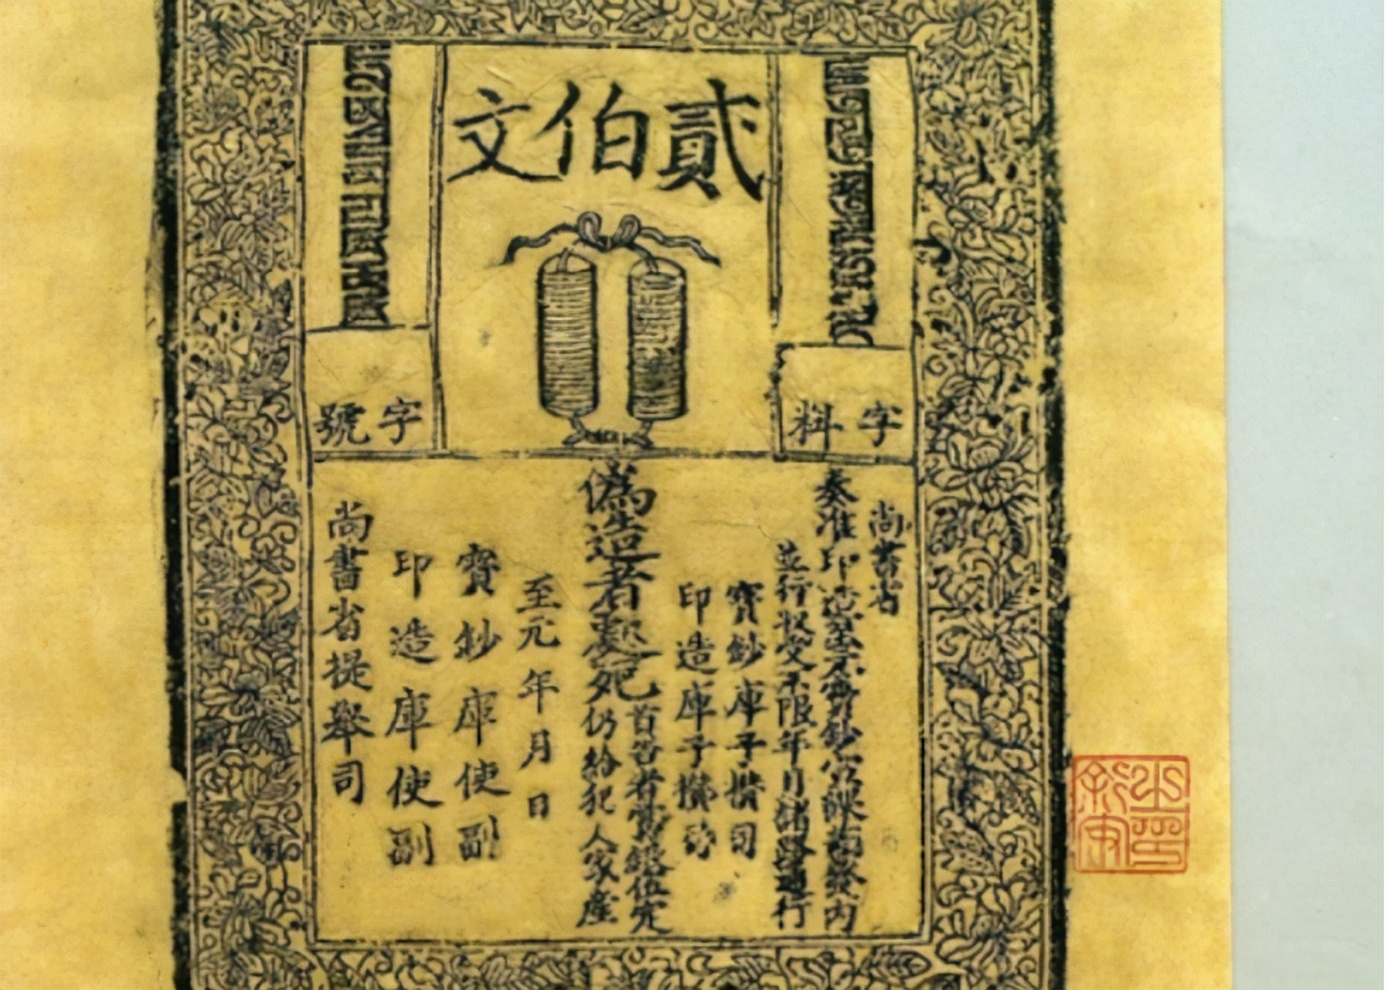 貳伯文
字料
字號
尚書省
奏准印造至元寶鈔宮課差發內
並行收受不限年月諸路通行
寶鈔庫子攢司
印造庫子攢司
偽造者處死
首告者賞銀伍定
仍給犯人家產
至元年月日
寶鈔庫使副
印造庫使副
尚書省提舉司